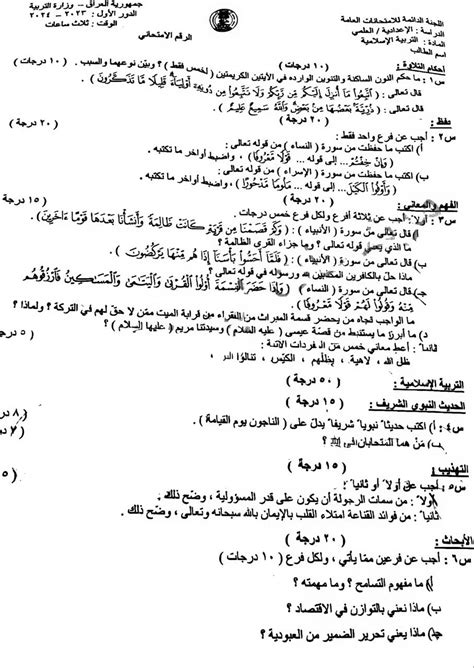 اللجنة الدائمة للامتحانات العامة
الدراسة : الإعدادية / العلمي
المادة : التربية الإسلامية
اسم الطالب
جمهورية العراق - وزارة التربية
الدور الأول : ٢٠٢٣ - ٢٠٢٤
الوقت : ثلاث ساعات
الرقم الامتحاني
أحكام التلاوة : ( ١٠ درجات )
س١ : ما حكم النون الساكنة والتنوين الوارده في الآيتين الكريمتين ( لخمس فقط ) ؟ وبين نوعهما والسبب . ( ١٠ درجات )
قال تعالى : ﴿ اتَّبِعُوا مَا أُنزِلَ إِلَيْكُم مِّن رَّبِّكُمْ وَلَا تَتَّبِعُوا مِن دُونِهِ أَوْلِيَاءَ قَلِيلًا مَّا تَذَكَّرُونَ ﴾ .
قال تعالى : ﴿ ذُرِّيَّةً بَعْضُهَا مِن بَعْضٍ وَاللَّهُ سَمِيعٌ عَلِيمٌ ﴾ .
حفظ : ( ٢٠ درجة )
س٢ : أجب عن فرع واحد فقط : ( ٢٠ درجة )
أ) اكتب ما حفظت من سورة ( النساء ) من قوله تعالى :
﴿ وَإِنْ خِفْتُمْ ... إلى قوله ... قَوْلًا مَّعْرُوفًا ﴾ ، واضبط أواخر ما تكتبه .
ب) اكتب ما حفظت من سورة ( الإسراء ) من قوله تعالى :
﴿ وَأَوْفُوا الْكَيْلَ ... إلى قوله ... مَلُومًا مَّدْحُورًا ﴾ ، واضبط أواخر ما تكتبه .
الفهم والمعاني : ( ٢٠ درجة )
س٣ : أولاً : أجب عن ثلاثة أفرع ولكل فرع خمس درجات . ( ١٥ درجة )
أ) قال تعالى من سورة ( الأنبياء ) : ﴿ وَكَمْ قَصَمْنَا مِن قَرْيَةٍ كَانَتْ ظَالِمَةً وَأَنشَأْنَا بَعْدَهَا قَوْمًا آخَرِينَ ﴾ .
ما الذي يعني قوله تعالى ؟ وما جزاء القرى الظالمة ؟
ب) قال تعالى من سورة ( الأنبياء ) : ﴿ فَلَمَّا أَحَسُّوا بَأْسَنَا إِذَا هُم مِّنْهَا يَرْكُضُونَ ﴾ .
ماذا حلّ بالكافرين المكذبين لله ورسوله في قوله تعالى ؟
جـ) قال تعالى من سورة ( النساء ) : ﴿ وَإِذَا حَضَرَ الْقِسْمَةَ أُولُوا الْقُرْبَى وَالْيَتَامَى وَالْمَسَاكِينُ فَارْزُقُوهُم
مِّنْهُ وَقُولُوا لَهُمْ قَوْلًا مَّعْرُوفًا ﴾ .
ما الواجب تجاه من يحضر قسمة الميراث من الفقراء من قرابة الميت ممن لا حق لهم في التركة ؟ ولماذا ؟
د) ما أبرز ما يستنبط من قصة عيسى ( عليه السلام ) وسيدتنا مريم ( عليها السلام ) ؟
ثانياً : أعط معاني خمس من المفردات الآتية : ( ٥ درجة )
ظل الله ، لاهية ، يظلهم ، الكيس ، تنالوا البر .
التربية الإسلامية : ( ٥٠ درجة )
الحديث النبوي الشريف : ( ١٥ درجة )
س٤ : أ) اكتب حديثاً نبوياً شريفاً يدل على ( الناجون يوم القيامة ) . ( ٨ درجة )
ب) مَن هما المتحابان في الله ؟
التهذيب : ( ١٥ درجة )
س٥ : أجب عن أولاً أو ثانياً :
أولاً : من سمات الرجولة أن يكون على قدر المسؤولية ، وضح ذلك .
ثانياً : من فوائد القناعة امتلاء القلب بالإيمان بالله سبحانه وتعالى ، وضح ذلك .
الأبحاث : ( ٢٠ درجة )
س٦ : أجب عن فرعين ممّا يأتي ، ولكل فرع ( ١٠ درجات )
أ) ما مفهوم التسامح ؟ وما مهمته ؟
ب) ماذا نعني بالتوازن في الاقتصاد ؟
جـ) ماذا يعني تحرير الضمير من العبودية ؟